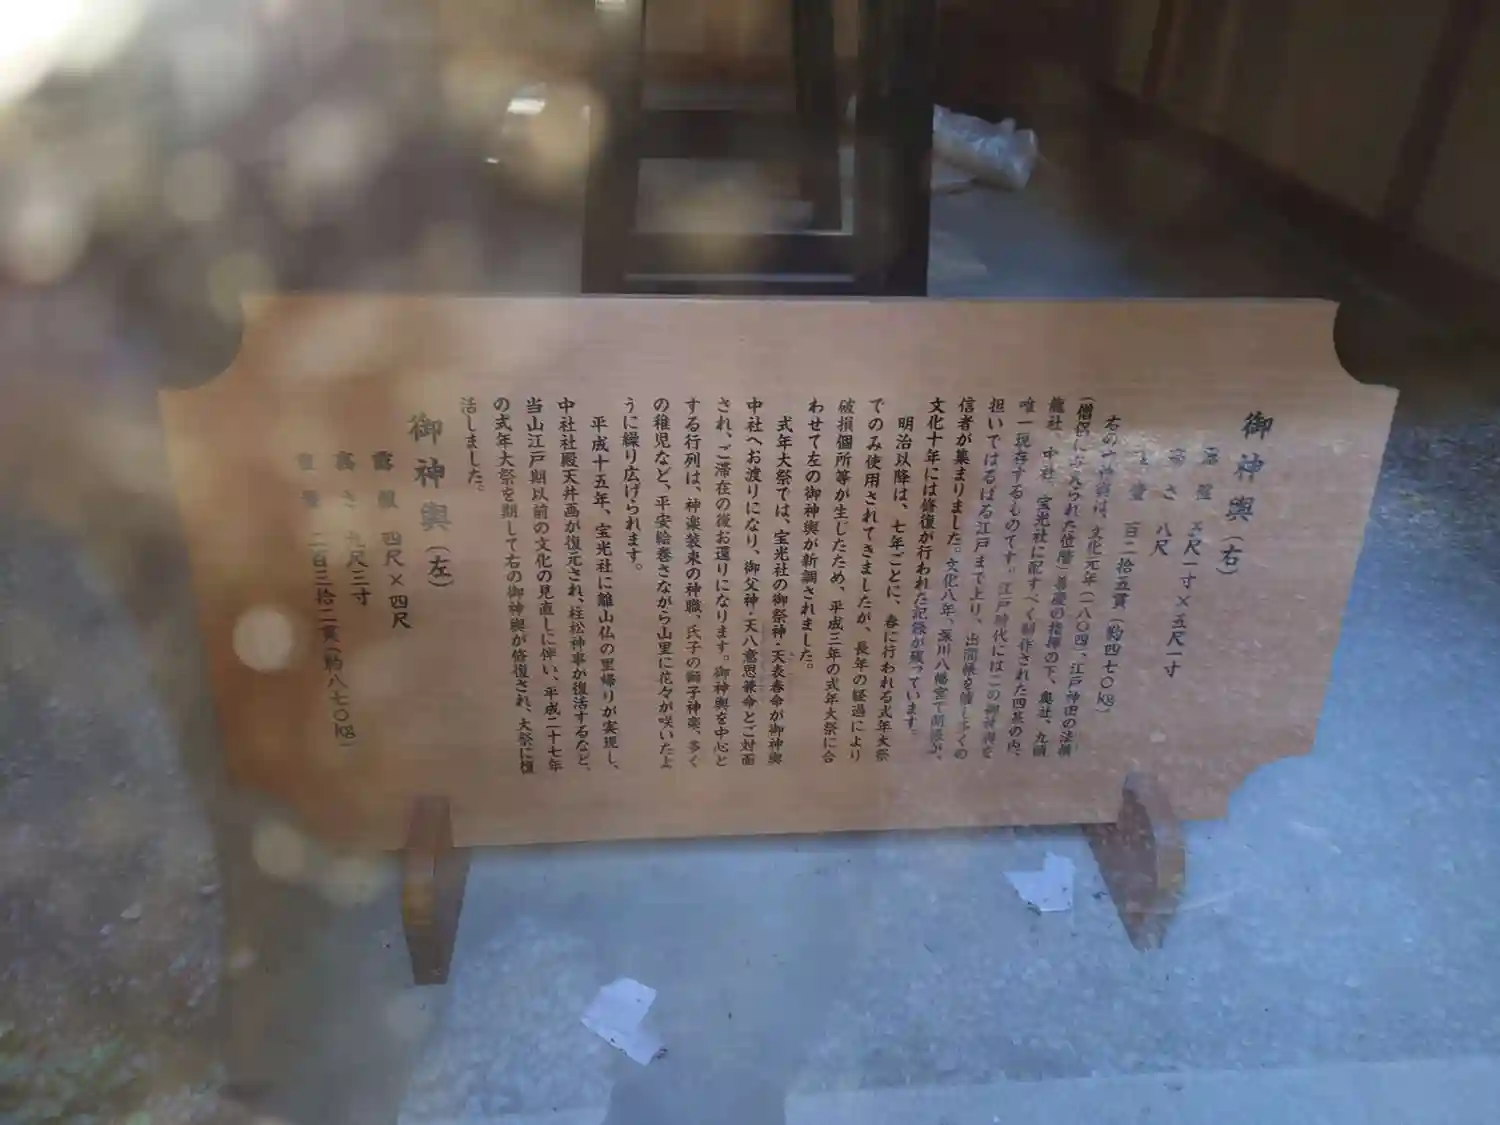 御神輿（右）
五尺一寸×五尺一寸
高さ 八尺
重量 百二拾五貫（約四七〇kg）
右の御神輿は、文化元年（一八〇四）、江戸神田の法橋
（僧侶に与えられた位階）善慶の指揮の下、奥社、九頭
龍社、中社、宝光社に配すべく制作された四基の内、
唯一現存するものです。江戸時代にはこの御神輿を
担いではるばる江戸まで上り、出開帳を催し多くの
信者が集まりました。文化八年、深川八幡宮で開帳が、
文化十年には修復が行われた記録が残っています。
明治以降は、七年ごとに、春に行われる式年大祭
でのみ使用されてきましたが、長年の経過により
破損個所等が生じたため、平成三年の式年大祭に合
わせて左の御神輿が新調されました。
式年大祭では、宝光社の御祭神・天表春命が御神輿
中社へお渡りになり、御父神・天八意思兼命とご対面
され、ご滞在の後お還りになります。御神輿を中心と
する行列は、神楽装束の神職、氏子の獅子神楽、多く
の稚児など、平安絵巻さながら山里に花々が咲いたよ
うに繰り広げられます。
平成十五年、宝光社に離山仏の里帰りが実現し、
中社社殿天井画が復元され、柱松神事が復活するなど、
当山江戸期以前の文化の見直しに伴い、平成二十七年
の式年大祭を期して右の御神輿が修復され、大祭に復
活しました。
御神輿（左）
露盤 四尺×四尺
高さ 九尺三寸
重量 二百三拾二貫（約八七〇kg）